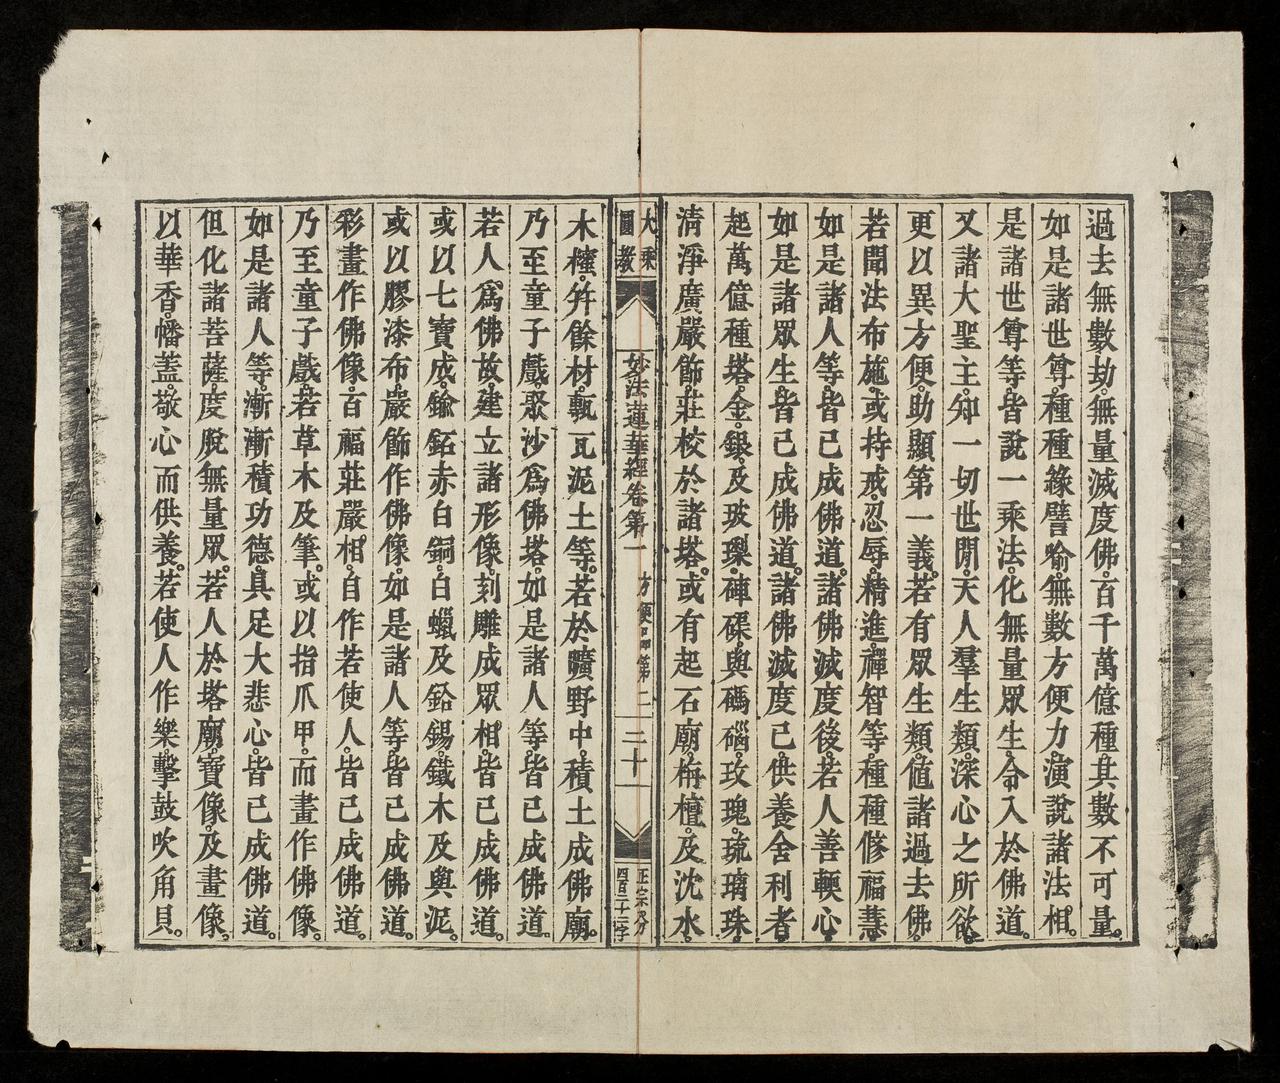 過去無數劫。無量滅度佛。百千萬億種。其數不可量。
如是諸世尊。種種緣譬喻。無數方便力。演說諸法相。
是諸世尊等。皆說一乘法。化無量眾生。令入於佛道。
又諸大聖主。知一切世間。天人羣生類。深心之所欲。
更以異方便。助顯第一義。若有眾生類。值諸過去佛。
若聞法布施。或持戒忍辱。精進禪智等。種種修福慧。
如是諸人等。皆已成佛道。諸佛滅度後。若人善輭心。
如是諸眾生。皆已成佛道。諸佛滅度已。供養舍利者。
起萬億種塔。金銀及玻瓈。硨磲與碼碯。玫瑰琉璃珠。
清淨廣嚴飾。莊校於諸塔。或有起石廟。栴檀及沈水。
大乘
圓教
妙法蓮華經卷第一
方便品第二
二十一
正宗分
木櫁并餘材。甎瓦泥土等。若於曠野中。積土成佛廟。
乃至童子戲。聚沙為佛塔。如是諸人等。皆已成佛道。
若人為佛故。建立諸形像。刻雕成眾相。皆已成佛道。
或以七寶成。鍮鉐赤白銅。白蠟及鉛錫。鐵木及與泥。
或以膠漆布。嚴飾作佛像。如是諸人等。皆已成佛道。
彩畫作佛像。百福莊嚴相。自作若使人。皆已成佛道。
乃至童子戲。若草木及筆。或以指爪甲。而畫作佛像。
如是諸人等。漸漸積功德。具足大悲心。皆已成佛道。
但化諸菩薩。度脫無量眾。若人於塔廟。寶像及畫像。
以華香幡蓋。敬心而供養。若使人作樂。擊鼓吹角貝。